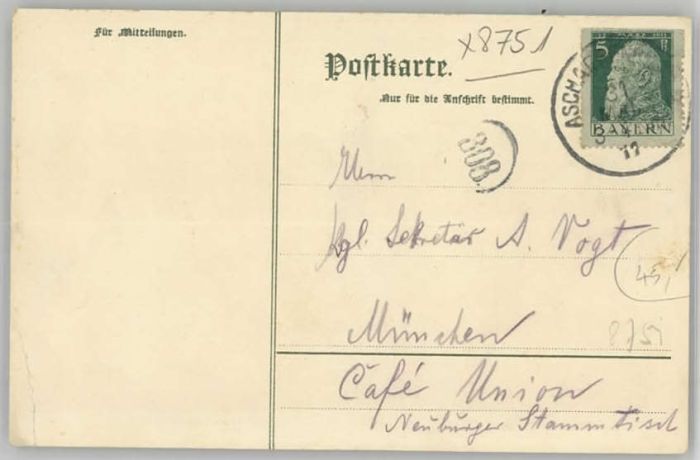 Für Mitteilungen.
x8751
Postkarte.
Nur für die Anschrift bestimmt.
5
BAYERN
ASCHA
11
308.
Herrn
Kgl. Sekretär A. Vogt
45,-
München
8751
Café Union
Neuburger Stammtisch